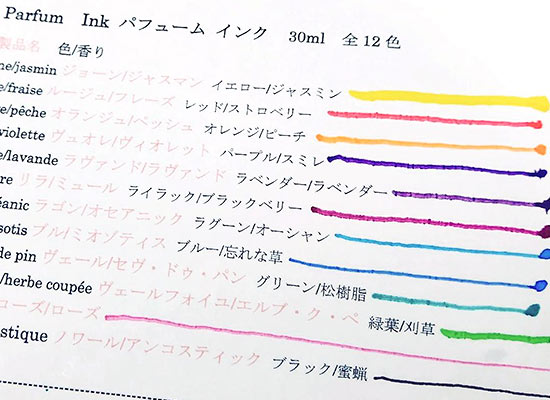 Parfum Ink パフューム インク 30ml 全12色
製品名 色/香り
ne/jasmin ジョーン/ジャスマン イエロー/ジャスミン
e/fraise ルージュ/フレーズ レッド/ストロベリー
e/pêche オランジュ/ペッシュ オレンジ/ピーチ
violette ヴュオレ/ヴィオレット パープル/スミレ
e/lavande ラヴァンド/ラヴァンド ラベンダー/ラベンダー
re リラ/ミュール ライラック/ブラックベリー
éanic ラゴン/オセアニック ラグーン/オーシャン
sotis ブル/ミオゾティス ブルー/忘れな草
de pin ヴェール/セヴ・ドゥ・パン グリーン/松樹脂
/herbe coupée ヴェールフォイユ/エルブ・ク・ペ 緑葉/刈草
ローズ/ローズ
stique ノワール/アンコスティック ブラック/蜜蝋